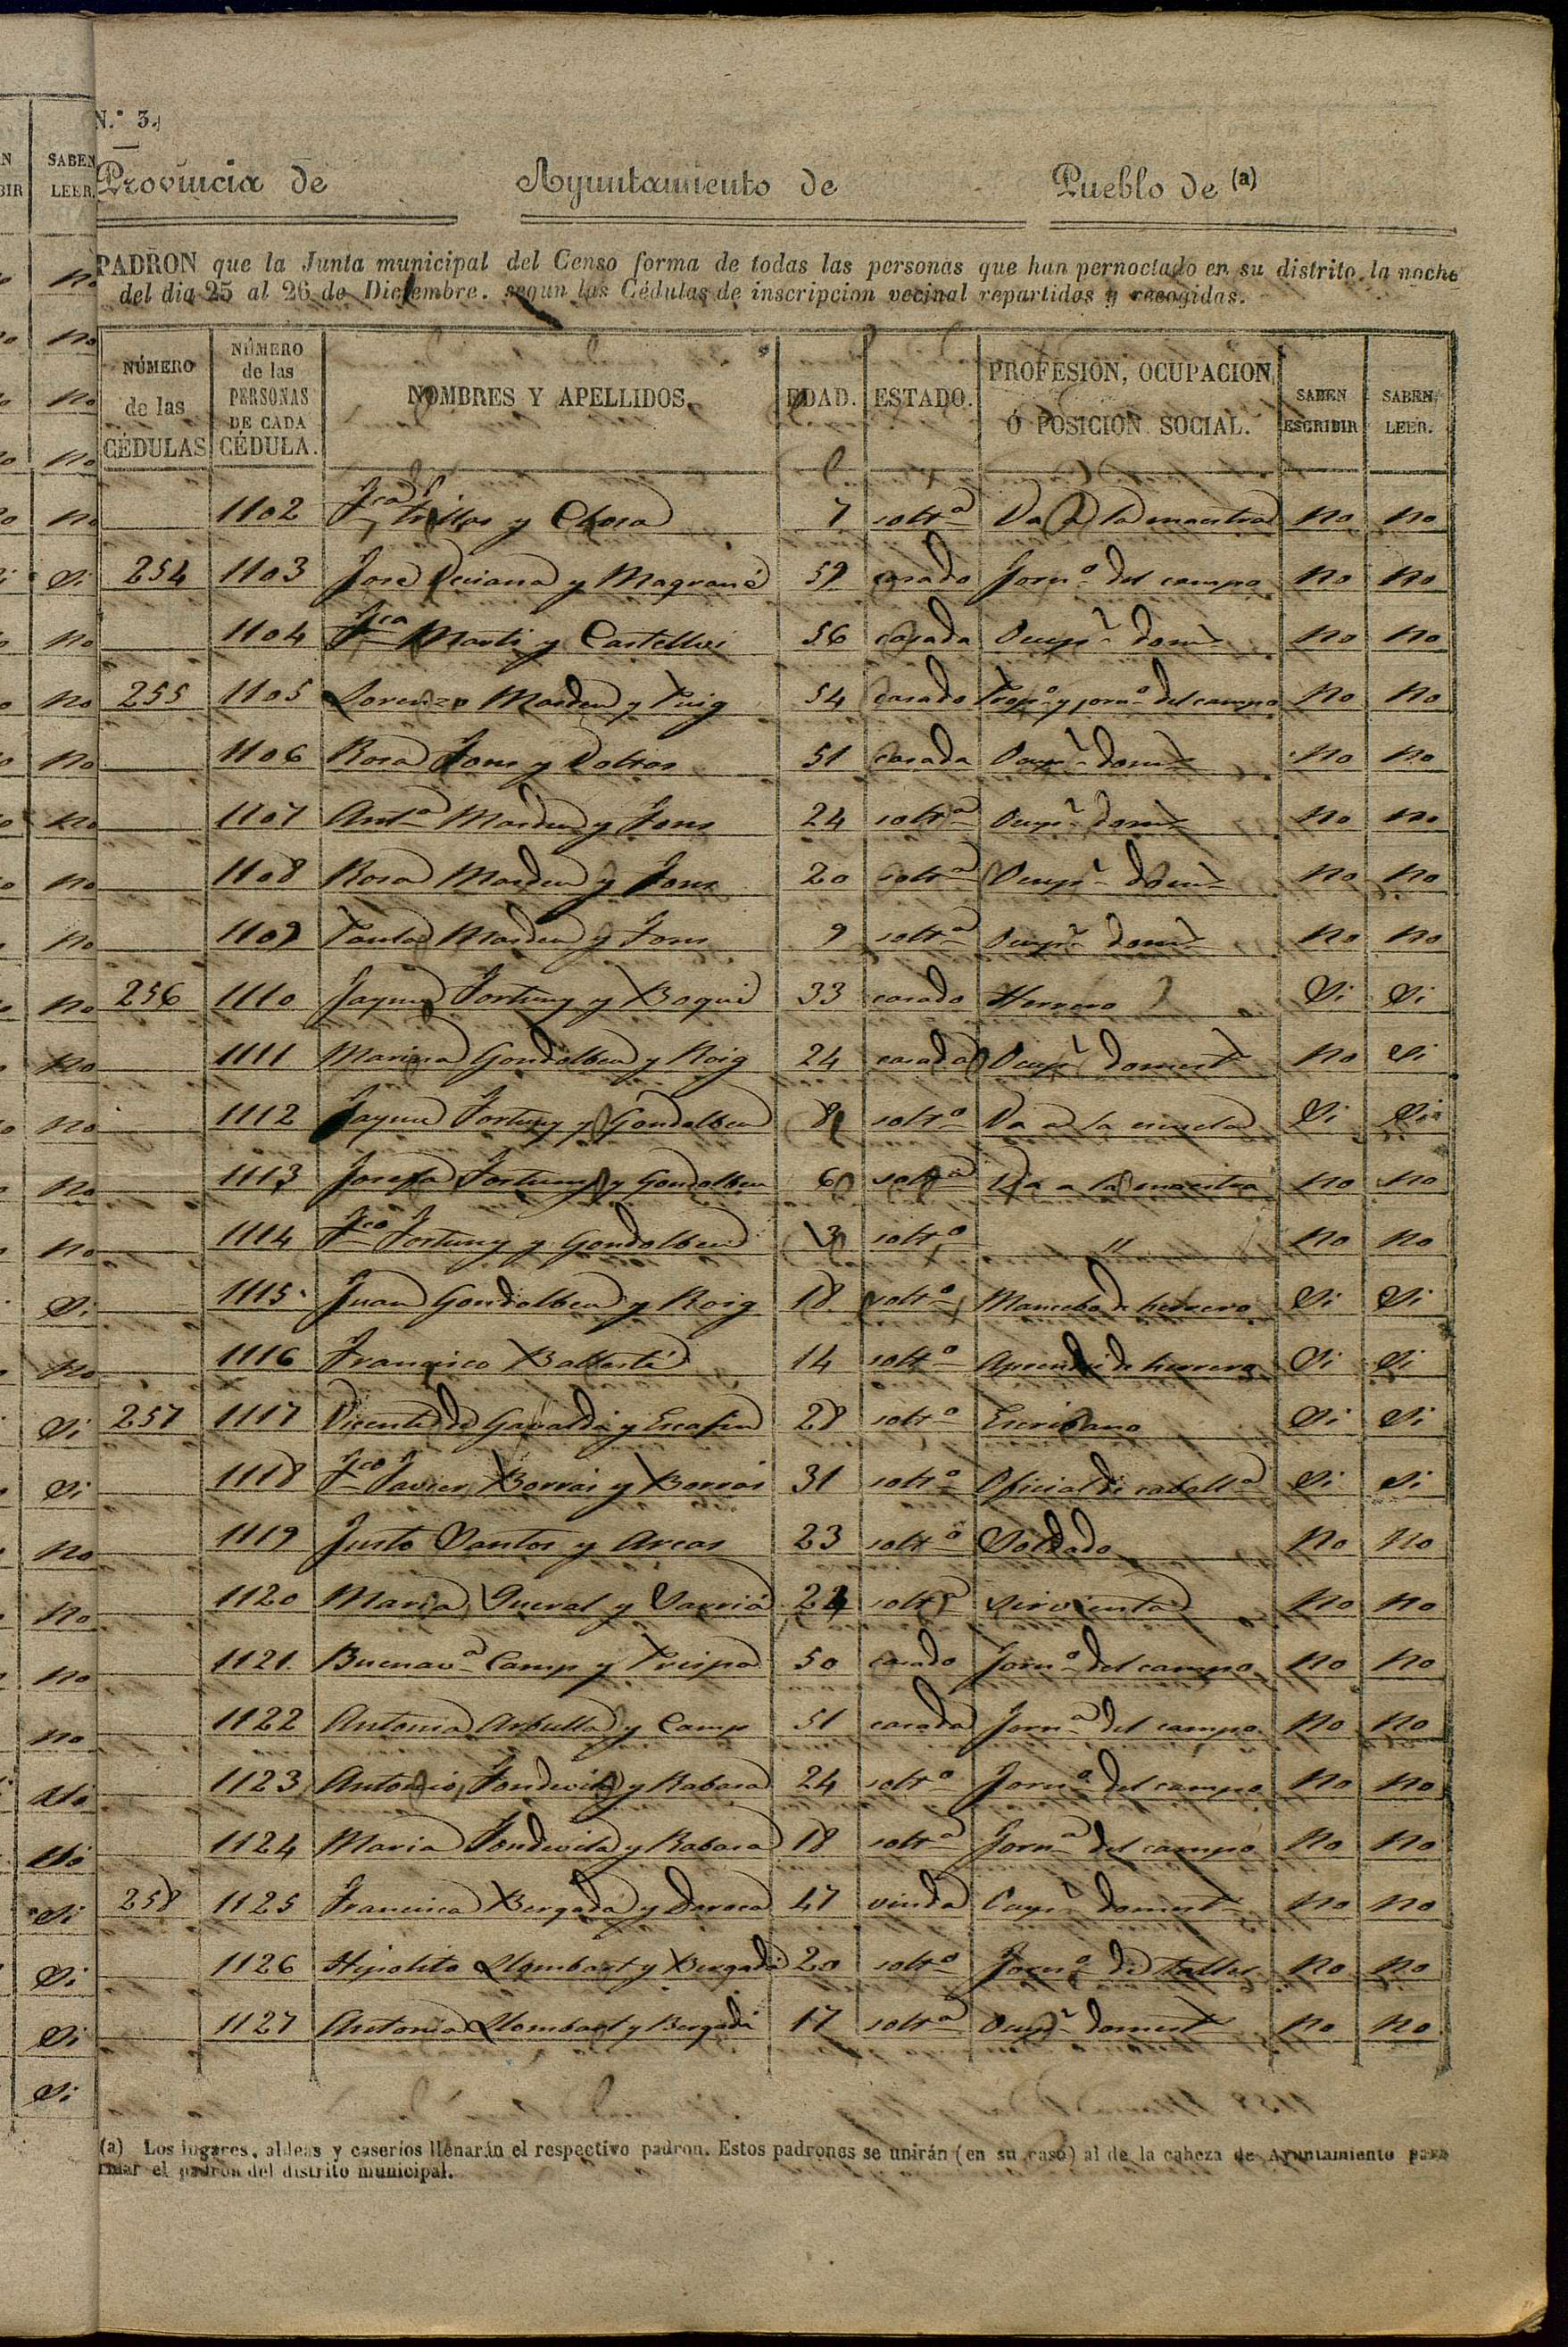 N.º 3.
Provincia de Ayuntamiento de Pueblo de (a)
PADRON que la Junta municipal del Censo forma de todas las personas que han pernoctado en su distrito la noche
del dia 25 al 26 de Diciembre. segun las Cédulas de inscripcion vecinal repartidas y recogidas.
NÚMERO de las CÉDULAS NÚMERO de las PERSONAS DE CADA CÉDULA. NOMBRES Y APELLIDOS. EDAD. ESTADO. PROFESION, OCUPACION Ó POSICION SOCIAL. SABEN ESCRIBIR SABEN LEER.
1102 Fca Trillas y 7 soltª Va a la maestra No No
254 1103 José Veciana y Magrané 59 casado Jornº del campo No No
1104 Fca Marti y Castellvi 56 casada Ocupn domt No No
255 1105 Lorenzo Masdeu y Puig 54 casado Propº y jornº del campo No No
1106 Rosa Fons y 51 casada Ocupn domt No No
1107 Antª Masdeu y Fons 24 soltª Ocupn domt No No
1108 Rosa Masdeu y Fons 20 soltª Ocupn domt No No
1109 Paula Masdeu y Fons 9 soltª Ocupn domt No No
256 1110 Jayme Fortuny y Boqué 33 casado Herrero Si Si
1111 Marina Gondolbeu y Roig 24 casada Ocupn domest No Si
1112 Jayme Fortuny y Gondolbeu 8 soltº Va a la escuela Si Si
1113 Josefa Fortuny y Gondolbeu 6 soltª Va a la maestra No No
1114 Fco Fortuny y Gondolbeu 3 soltº " No No
1115 Juan Gondolbeu y Roig 18 soltº Mancebo de herrero Si Si
1116 Francisco Ballesté 14 soltº Aprendiz de herrero Si Si
257 1117 Vicente de Gavaldá y Escofin 28 soltº Escribano Si Si
1118 Fco Javier Borrás y Borrás 31 soltº Oficial de caballª Si Si
1119 Justo Santos y Arcas 23 soltº Soldado No No
1120 Maria Queral y 22 soltª sirvienta No No
1121 Buenavª Camp y Crispa 50 casado Jornº del campo No No
1122 Antonia Arbulla y Camp 51 casada Jornª del campo No No
1123 Antonio Fondevila y Rabasa 24 soltº Jornº del campo No No
1124 Maria Fondevila y Rabasa 18 soltª Jornª del campo No No
258 1125 Francisca Bergadá y Daroca 47 viuda Ocupn domest No No
1126 Hipolito Llombart y Bergadá 20 soltº Jornº de Taller No No
1127 Antonia Llombart y Bergadá 17 soltª Ocupn domest No No
(a) Los lugares, aldeas y caseríos llenarán el respectivo padron. Estos padrones se unirán (en su caso) al de la cabeza de Ayuntamiento para
rmar el padron del distrito municipal.